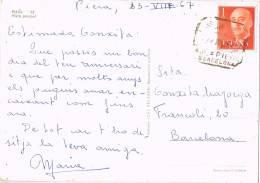 Piera, 23-VIII-67
Estimada Conxita:
Que passis un bon
dia del teu aniversari
i que per molts anys
els puguis anar en-
caixant com fins
ara.
De tot cor t'ho de-
sitja la teva amiga.
Maria
ESPAÑA
BARCELONA
Srta.
Conxita
Francolí, 20
Barcelona